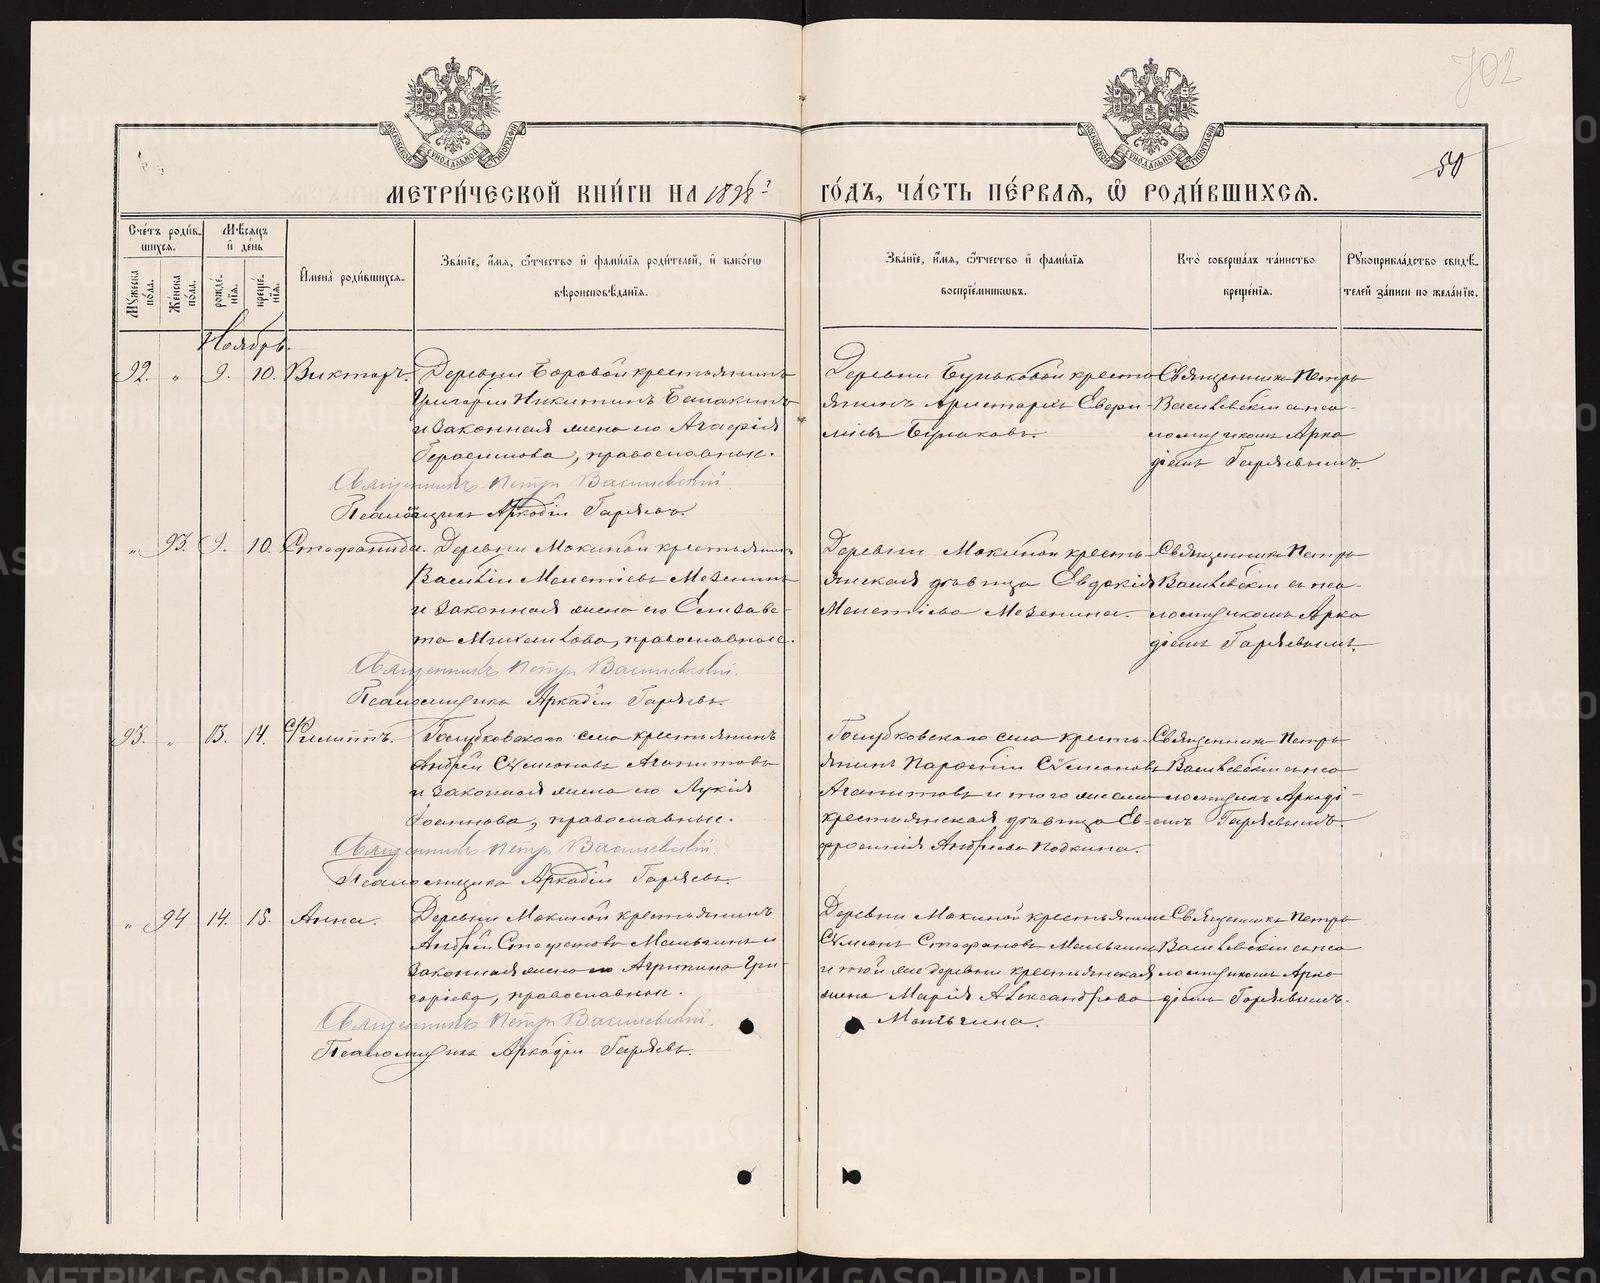 702
50
МОСКОВСКОЙ СѴНОДАЛЬНОЙ ТИПОГРАФІИ
МОСКОВСКОЙ СѴНОДАЛЬНОЙ ТИПОГРАФІИ
МЕТРИ́ЧЕСКОЙ КНИ́ГИ НА 1898 ГО́ДЪ, ЧА́СТЬ ПЕ́РВАѦ, Ѽ РОДИ́ВШИХСѦ.
Сче́тъ роди́вшихсѧ.
Мѣ́сѧцъ и҆ де́нь
И҆мена̀ роди́вшихсѧ.
Зва́нїе, и҆́мѧ, ѻ҆́тчество и҆ фами́лїѧ роди́телей, и҆ како́гѡ
вѣроисповѣ́данїѧ.
Зва́нїе, и҆́мѧ, ѻ҆́тчество и҆ фами́лїѧ
воспрїе́мникѡвъ.
Кто̀ соверша́лъ та́инство
креще́нїѧ.
Рꙋкоприкла́дство свидѣ́телей за́писи по жела́нїю.
Мꙋ́жеска по́ла.
Же́нска по́ла.
рожде́нїѧ.
креще́нїѧ.
Ноябрь.
92. " 9. 10. Викторъ. Деревни Боровой крестьянинъ
Григорій Никитинъ Башакинъ
и законная жена его Агафія
Герасимова, православные.
Священникъ Петръ Васильевскій.
Псаломщикъ Аркадій Гаряевъ.
Деревни Буньковой кресть-
янинъ Аристархъ
Буньковъ.
Священникъ Петръ
Васильевскій съ пса-
ломщикомъ Арка
діемъ Гаряевымъ.
" 93. 9. 10. Стефанида. Деревни Мокиной крестьянинъ
Василій Мелетіевъ Мезенинъ
и законная жена его Елизаве-
та Михаилова, православные.
Священникъ Петръ Васильевскій.
Псаломщикъ Аркадій Гаряевъ.
Деревни Мокиной кресть-
янская дѣвица Евдокія
Мелетіева Мезенина.
Священникъ Петръ
Васильевскій съ пса-
ломщикомъ Арка
діемъ Гаряевымъ.
93. " 13. 14. Филиппъ. Голубковскаго села крестьянинъ
Андрей Сѵмеоновъ Агапитовъ
и законная жена его Лукія
Іоаннова, православные.
Священникъ Петръ Васильевскій.
Псаломщикъ Аркадій Гаряевъ.
Голубковскаго села кресть-
янинъ Сѵмеоновъ
Агапитовъ и того же села
крестьянская дѣвица Ев-
фросинія Андреева Подкина.
Священникъ Петръ
Васильевскій съ пса
ломщикъ Аркаді-
емъ Гаряевымъ.
" 94 14. 15. Анна. Деревни Мокиной крестьянинъ
Андрей Стефановъ Мальгинъ и
законная жена его Агрипина Гри-
горіева, православные.
Священникъ Петръ Васильевскій.
Псаломщикъ Аркадій Гаряевъ.
Деревни Мокиной крестьянинъ
Сѵмеонъ Стефановъ Мальгинъ
и той же деревни крестьянская
жена Марія Александрова
Мальгина.
Священникъ Петръ
Васильевскій съ пса
ломщикомъ Арка-
діемъ Гаряевымъ.